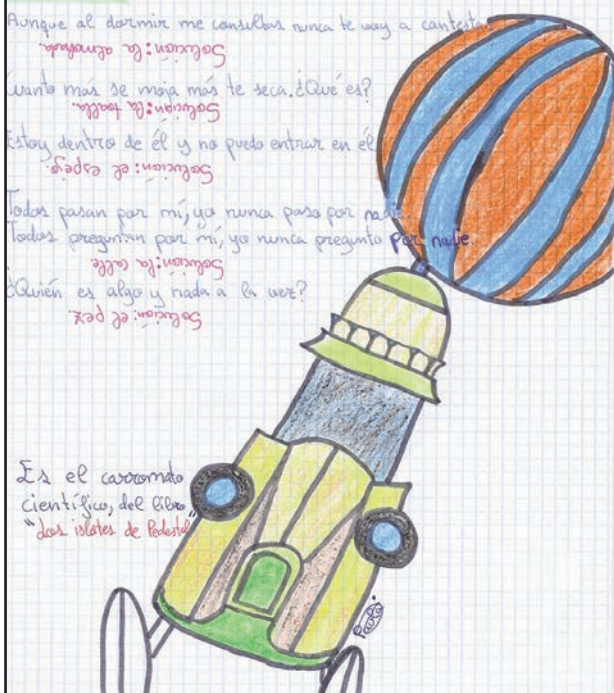 Aunque al dormir me consultas nunca te voy a contesta
Solución: la almohada.
Cuanto más se moja más te seca. ¿Qué es?
Solución: la toalla.
Estoy dentro de él y no puedo entrar en él
Solución: el espejo.
Todos pasan por mí, yo nunca paso por nadie.
Todos preguntan por mí, yo nunca pregunto por nadie.
Solución: la calle
¿Quién es algo y nada a la vez?
Solución: el pez.
Es el carromato
científico, del libro
"Los islotes de Pedestal
Paula